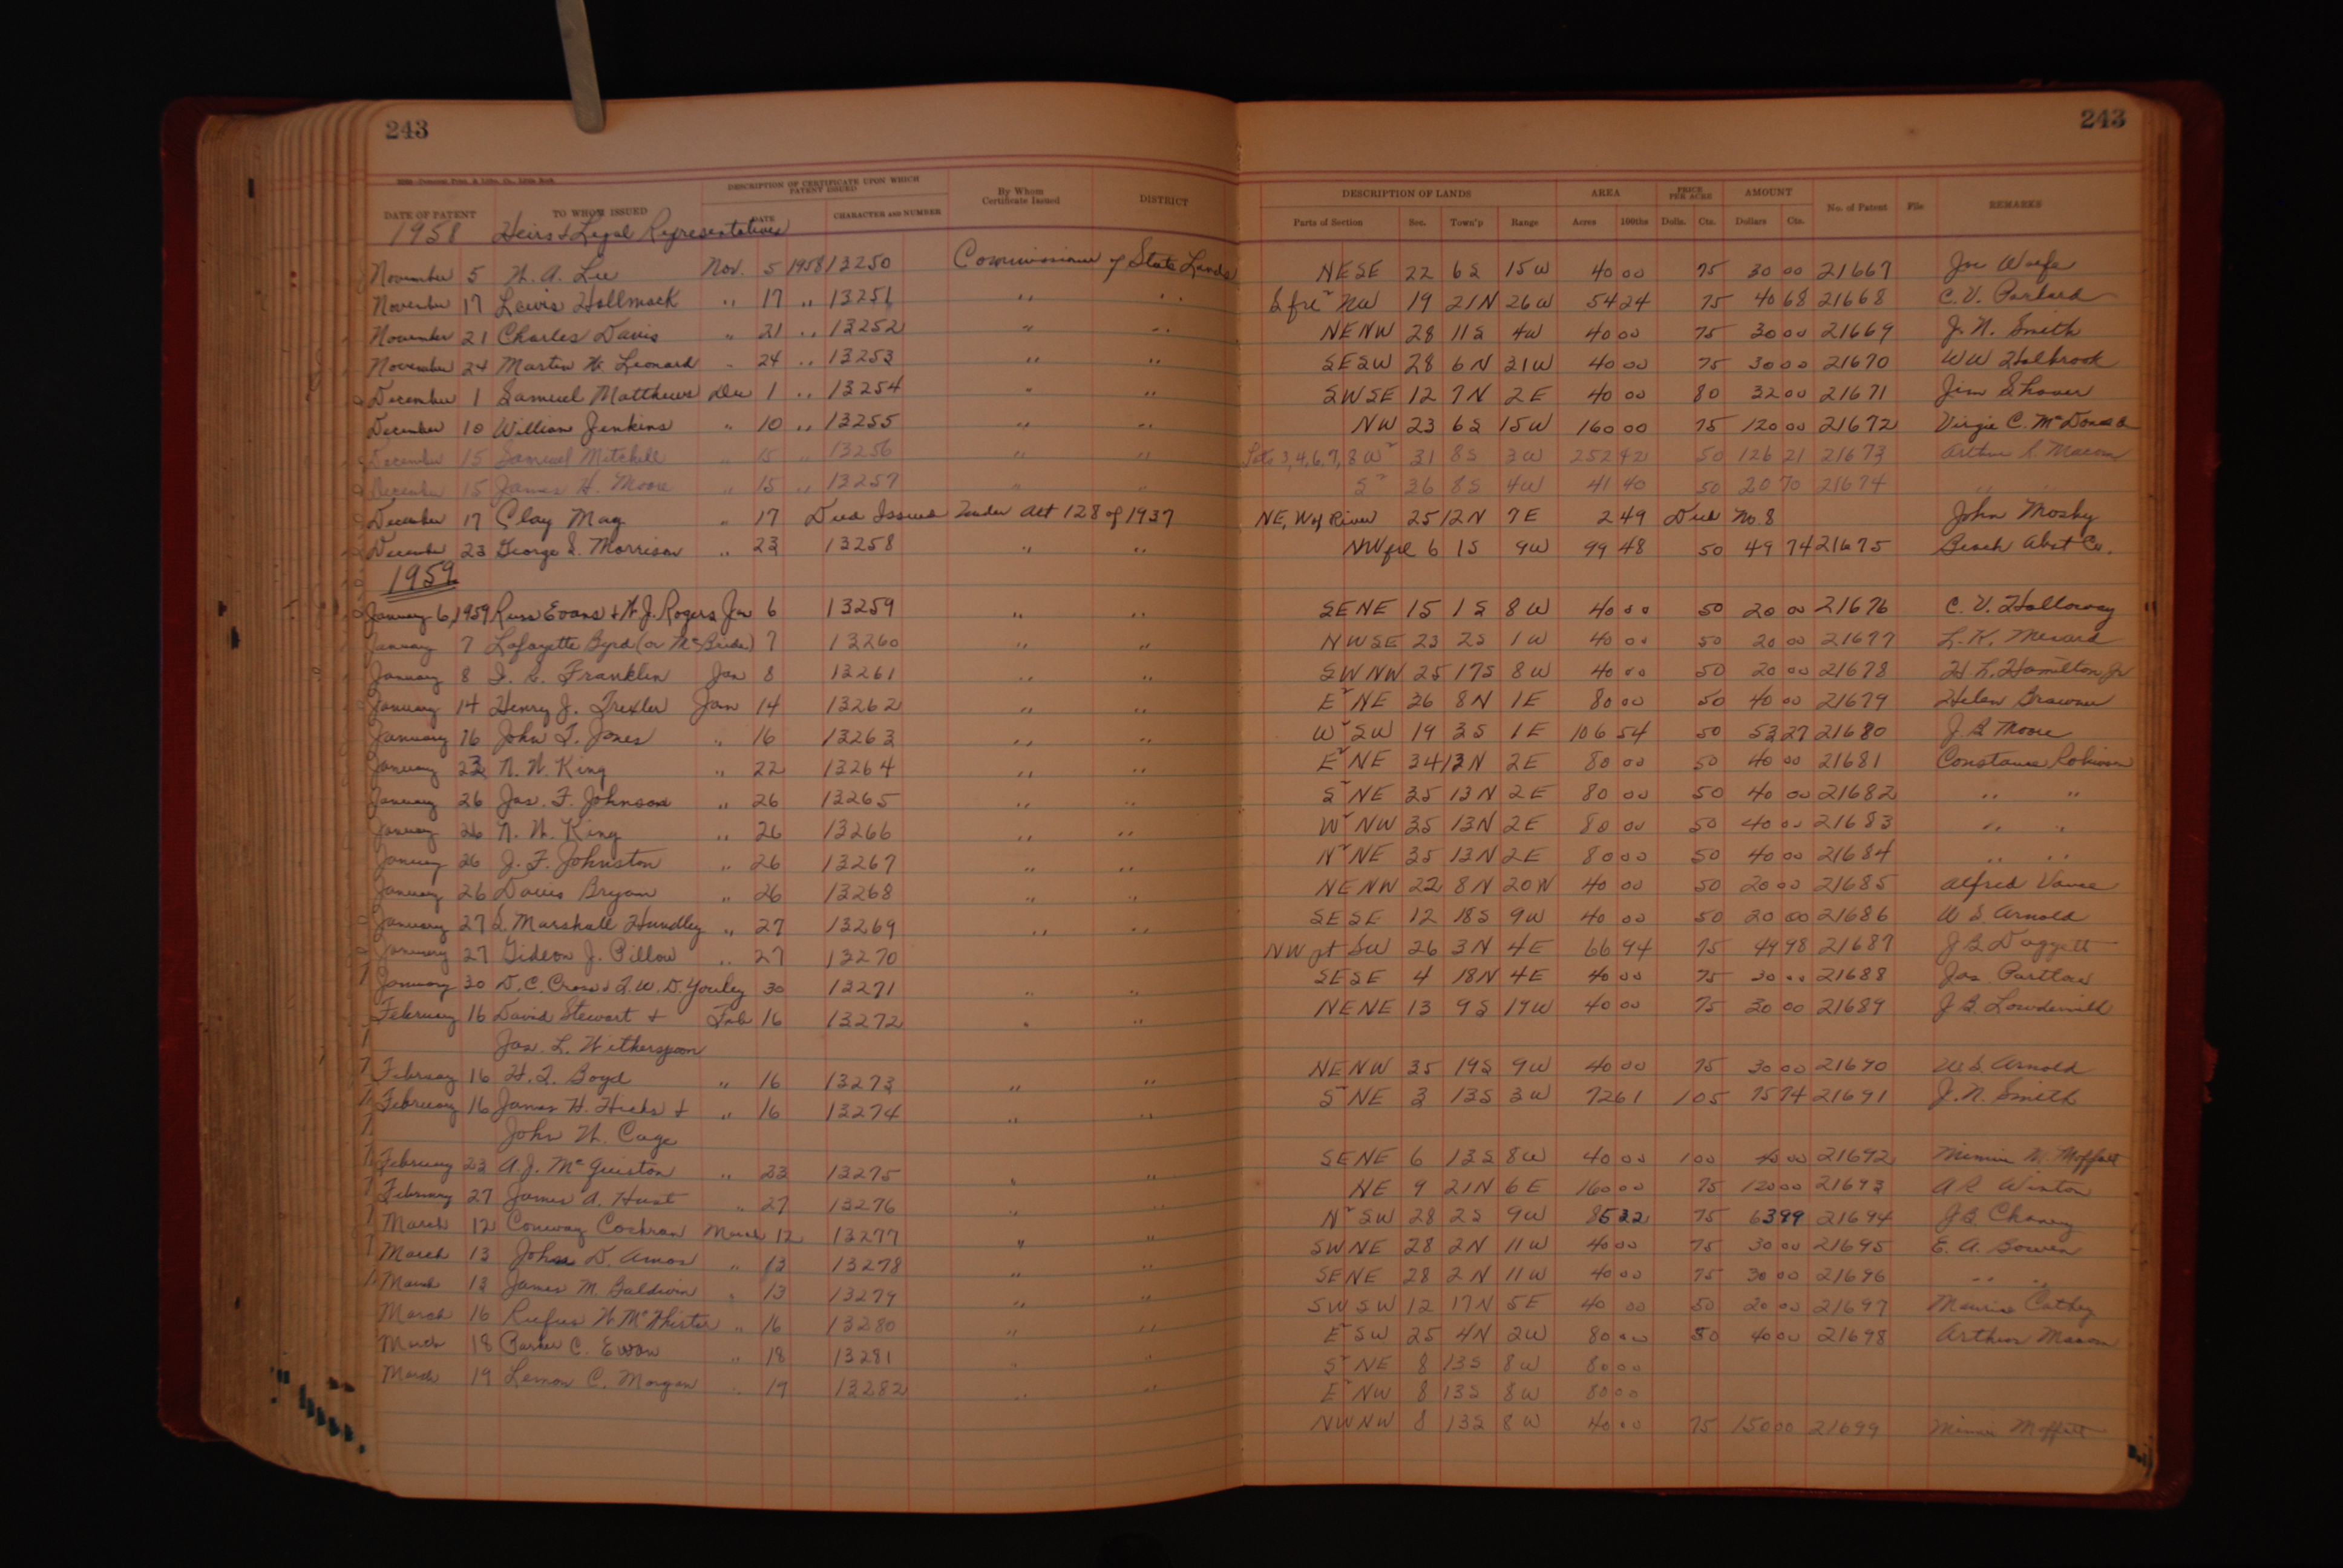 243 243
DESCRIPTION OF CERTIFICATE UPON WHICH PATENT ISSUED
DATE OF PATENT TO WHOM ISSUED DATE CHARACTER AND NUMBER By Whom Certificate Issued DISTRICT DESCRIPTION OF LANDS AREA PRICE PER ACRE AMOUNT No. of Patent File REMARKS
Parts of Section Sec. Town'p Range Acres 100ths Dolls. Cts. Dollars Cts.
1958 Heirs & Legal Representatives
November 5 W. A. Lee Nov. 5 1958 13250 Commissioner of State Lands NESE 22 6S 15W 40 00 75 30 00 21667 Joe Wolfe
November 17 Lewis Hollmack " 17 " 13251 " " S frl 2 NW 19 21N 26W 54 24 75 40 68 21668 C. V.
November 21 Charles Davis " 21 " 13252 " " NENW 28 11S 4W 40 00 75 30 00 21669 J. N. Smith
November 24 Martin W. Leonard " 24 " 13253 " " SESW 28 6N 31W 40 00 75 30 00 21670 WW Holbrook
December 1 Samuel Matthews Dec 1 " 13254 " " SWSE 12 7N 2E 40 00 80 32 00 21671 Jim Shover
December 10 William Jenkins " 10 " 13255 " " NW 23 6S 15W 160 00 75 120 00 21672 Virgie C. McDonald
December 15 Samuel Mitchell " 15 " 13256 " " Lots 3,4,6,7,8 W2 31 8S 3W 252 42 50 126 21 21673 Arthur
December 15 James H. Moore " 15 " 13257 " " S2 36 8S 4W 41 40 50 20 70 21674 "
December 17 Clay May " 17 Deed Issued Under Act 128 of 1937 NE, W of River 25 12N 7E 2 49 Deed No. 8 John Mosby
December 23 George S. Morrison " 23 13258 " " NWfrl 6 1S 9W 99 48 50 49 74 21675 Beach Abst Co.
1959
January 6, 1959 Russ Evans & W. J. Rogers Jan 6 13259 " " SENE 15 1S 8W 40 00 50 20 00 21676 C. V. Holloway
January 7 Lafayette Byrd (or McBride) 7 13260 " " NWSE 23 2S 1W 40 00 50 20 00 21677 L. K. Menard
January 8 Franklin Jan 8 13261 " " SWNW 25 17S 8W 40 00 50 20 00 21678 H. L. Hamilton Jr
January 14 Henry J. Trexler Jan 14 13262 " " E2 NE 36 8N 1E 80 00 50 40 00 21679 Helen Brawner
January 16 John T. Jones " 16 13263 " " W2 SW 19 3S 1E 106 54 50 53 27 21680 J. B. Moore
January 22 N. W. King " 22 13264 " " E2 NE 34 13N 2E 80 00 50 40 00 21681 Constance Robinson
January 26 Jas. F. Johnson " 26 13265 " " S2 NE 35 13N 2E 80 00 50 40 00 21682 " "
January 26 N. W. King " 26 13266 " " W2 NW 35 13N 2E 80 00 50 40 00 21683 " "
January 26 J. F. Johnston " 26 13267 " " N2 NE 35 13N 2E 80 00 50 40 00 21684 " "
January 26 Davis Bryan " 26 13268 " " NENW 22 8N 20W 40 00 50 20 00 21685 Alfred Vance
January 27 S. Marshall Hundley " 27 13269 " " SESE 12 18S 9W 40 00 50 20 00 21686 W. S. Arnold
January 27 Gideon J. Pillow " 27 13270 NW pt SW 26 3N 4E 66 94 75 49 98 21687 J. B. Daggett
January 30 D. C. Cross & T. W. D. Youley 30 13271 " " SESE 4 18N 4E 40 00 75 30 00 21688 Jas. Partlow
February 16 David Stewart & Feb 16 13272 " " NENE 13 9S 19W 40 00 75 30 00 21689 J. B. Lowdermilk
Jas. L. Witherspoon
February 16 H. T. Boyd " 16 13273 " " NENW 35 19S 9W 40 00 75 30 00 21690 W. S. Arnold
February 16 James H. Hicks & " 16 13274 " " S2 NE 3 13S 3W 72 61 1 05 75 74 21691 J. N. Smith
John W. Cage
February 23 A. J. McQuiston " 23 13275 " " SENE 6 13S 8W 40 00 1 00 40 00 21692 Moffatt
February 27 James A. Hust " 27 13276 " " NE 9 21N 6E 160 00 75 120 00 21693 A R Winton
March 12 Conway Cochran March 12 13277 " " N2 SW 28 2S 9W 85 32 75 63 99 21694 J. B. Chaney
March 13 John D. Amos " 13 13278 " " SWNE 28 2N 11W 40 00 75 30 00 21695 E. A. Bowen
March 13 James M. Baldwin " 13 13279 " " SENE 28 2N 11W 40 00 75 30 00 21696 " "
March 16 Rufus W McWhister " 16 13280 " " SWSW 12 17N 5E 40 00 50 20 00 21697 Cathey
March 18 Parker C. Ewan " 18 13281 " " E2 SW 25 4N 2W 80 00 50 40 00 21698 Arthur
March 19 Lemon C. Morgan " 19 13282 " " S2 NE 8 13S 8W 80 00
E2 NW 8 13S 8W 80 00
NWNW 8 13S 8W 40 00 75 150 00 21699 Moffatt